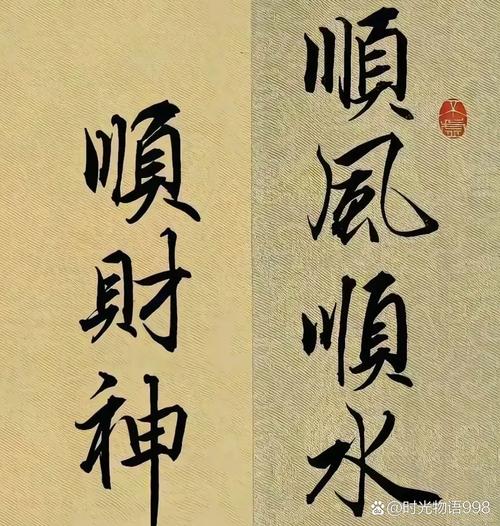 順風順水
順財神
@时光物语998